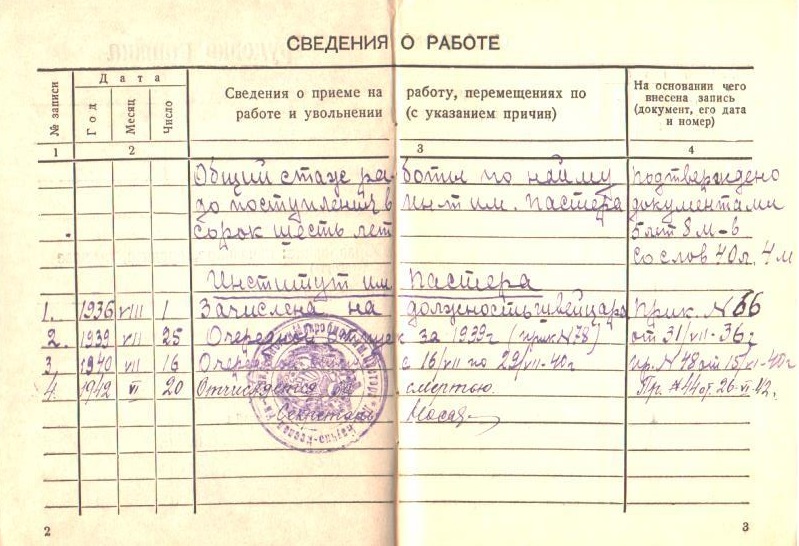 СВЕДЕНИЯ О РАБОТЕ
№ записи
Дата
Год
Месяц
Число
Сведения о приеме на работу, перемещениях по
работе и увольнении (с указанием причин)
На основании чего
внесена запись
(документ, его дата
и номер)
1 2 3 4
Общий стаж работы по найму подтверждено
до поступления в ин-т им. Пастера документами
сорок шесть лет 5 лет 8 м-в
со слов 40 л. 4 м
Институт им Пастера
1. 1936 VIII 1 Зачислена на должность швейцара Прик. N 66
2. 1939 VII 25 Очередной отпуск за 1939 г (прик N 78) от 31/VII-36 г
3. 1940 VII 16 с 16/VII по 29/VII-40 г пр. N 48 от
4. 1942 VI 20 смертью. Пр. № 44 от 26-VI-42.
Секретарь
2
3